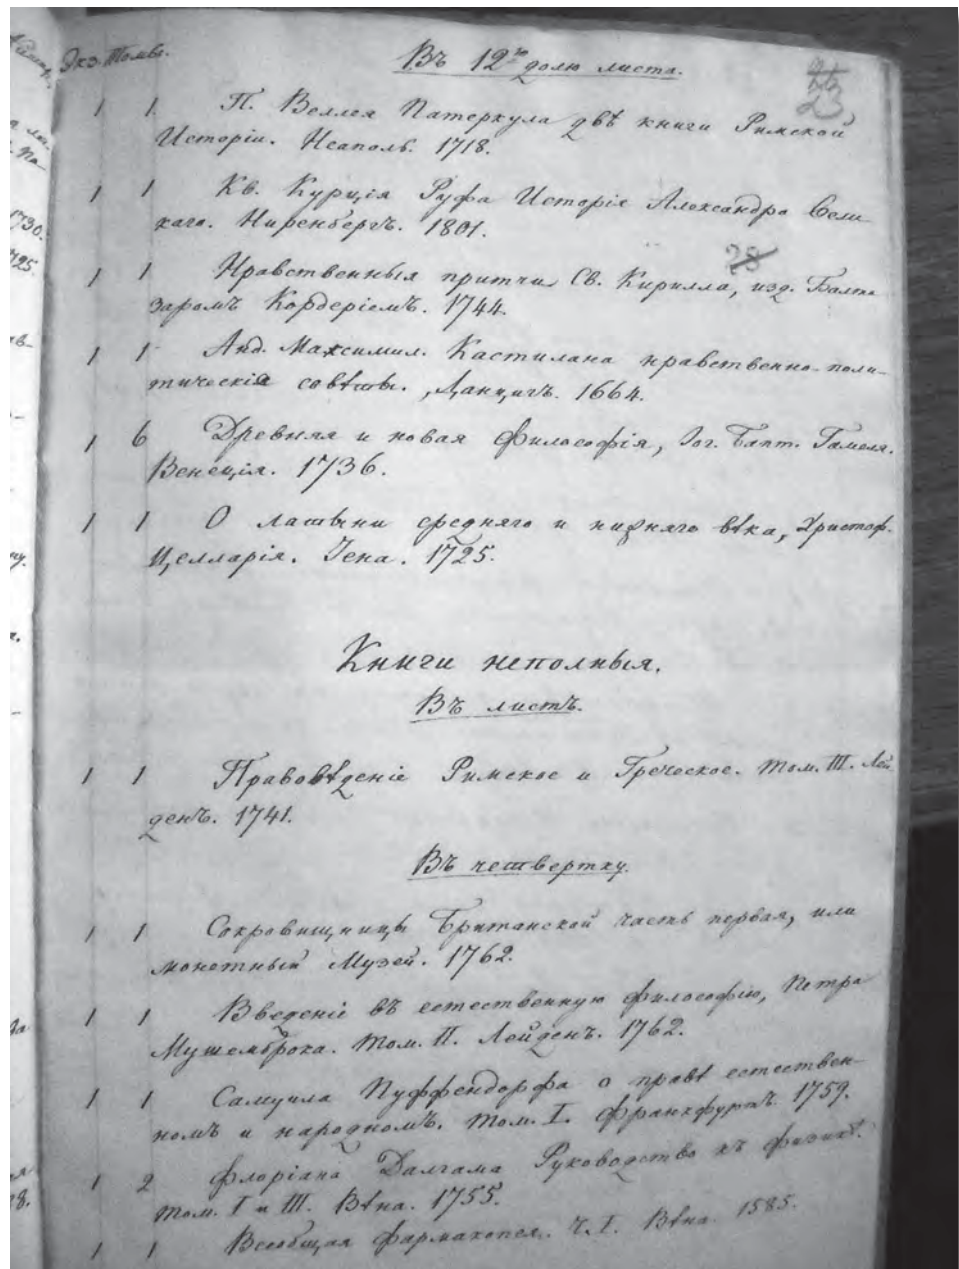 Экз. Томы.
Въ 12ю долю листа.
23
1 1 П. Веллея Патеркула двѣ книги Римской
Исторіи. Неаполь. 1718.
1 1 Кв. Курція Руфа Исторія Александра Вели-
каго. Ниренбергъ. 1801.
28
1 1 Нравственныя притчи Св. Кирилла, изд. Балта-
заромъ Кордеріемъ. 1744.
1 1 Анд. Максимил. Кастилана нравственно-поли-
тическія совѣты. Данцигъ. 1664.
1 6 Древняя и новая Философія, Іог. Бапт. Гамеля.
Венеція. 1736.
1 1 О латыни средняго и нижняго вѣка, Христоф.
Целларія. Іена. 1725.
Книги неполныя.
Въ листъ.
1 1 Правовѣденіе Римское и Греческое. Том. III. Лей-
денъ. 1741.
Въ четвертку.
1 1 Сокровищницы Британской часть первая, или
монетный Музей. 1762.
1 1 Введеніе въ естественную философію, Петра
Мушемброка. Том. II. Лейденъ. 1762.
1 1 Самуила Пуффендорфа о правѣ естествен-
номъ и народномъ. Том. I. Франкфуртъ. 1759.
1 2 Флоріана Далгама Руководство къ физикѣ.
Том. I и III. Вѣна. 1755.
1 1 Всеобщая фармакопея. Ч. I. Вѣна. 1585.
1730.